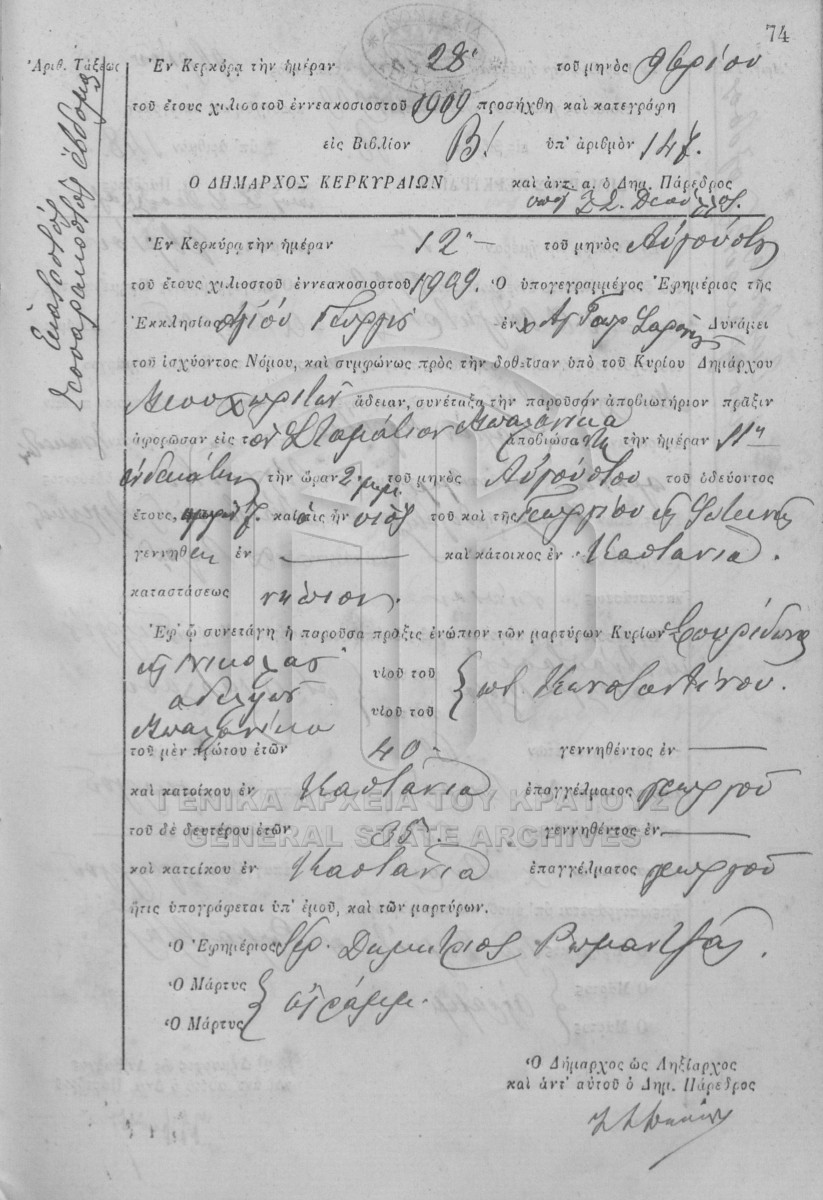 74
Ἀριθ. Τάξεως
Ἑκατοστὸν
τεσσαρακοστὸν ἕβδομον
Ἐν Κερκύρᾳ τὴν ἡμέραν 28 τοῦ μηνὸς 9βρίου
τοῦ ἔτους χιλιοστοῦ ἐννεακοσιοστοῦ 1909 προσήχθη καὶ κατεγράφη
εἰς Βιβλίον Β! ὑπ' ἀριθμὸν 147.
Ο ΔΗΜΑΡΧΟΣ ΚΕΡΚΥΡΑΙΩΝ καὶ ἀντ. α. ὁ Δημ. Πάρεδρος
Ἐν Κερκύρᾳ τὴν ἡμέραν 12 τοῦ μηνὸς Αὐγούστου
τοῦ ἔτους χιλιοστοῦ ἐννεακοσιοστοῦ 1909. Ὁ ὑπογεγραμμένος Ἐφημέριος τῆς
Ἐκκλησίας Ἁγίου Γεωργίου ἐν Δυνάμει
τοῦ ἰσχύοντος Νόμου, καὶ συμφώνως πρὸς τὴν δοθεῖσαν ὑπὸ τοῦ Κυρίου Δημάρχου
Μεσοχωριτῶν ἄδειαν, συνέταξα τὴν παροῦσαν ἀποβιωτήριον πρᾶξιν
ἀφορῶσαν εἰς τὸν Σταμάτιον Μπαλάνικα ἀποβιώσαντα τὴν ἡμέραν 11ην
ἑνδεκάτην τὴν ὥραν 2 μ.μ. τοῦ μηνὸς Αὐγούστου τοῦ ὁδεύοντος
ἔτους, καὶ εἰς ἦν υἱὸς τοῦ καὶ τῆς Γεωργίου κ Φωτεινῆς
γεννηθεὶς ἐν — καὶ κάτοικος ἐν Καστανιά.
καταστάσεως νήπιον.
Ἐφ' ᾧ συνετάγη ἡ παροῦσα πρᾶξις ἐνώπιον τῶν μαρτύρων Κυρίων Σπυρίδωνος
Νικολάου υἱοῦ τοῦ
ἀδελφῶν
ποτ. Κωνσταντίνου.
Μπαλάνικα υἱοῦ τοῦ
τοῦ μὲν πρώτου ἐτῶν 40 γεννηθέντος ἐν —
καὶ κατοίκου ἐν Καστανιά ἐπαγγέλματος γεωργοῦ
ΓΕΝΙΚΑ ΑΡΧΕΙΑ ΤΟΥ ΚΡΑΤΟΥΣ
τοῦ δὲ δευτέρου ἐτῶν 35 γεννηθέντος ἐν —
GENERAL STATE ARCHIVES
καὶ κατοίκου ἐν Καστανιά ἐπαγγέλματος γεωργοῦ
ἥτις ὑπογράφεται ὑπ' ἐμοῦ, καὶ τῶν μαρτύρων.
Ὁ Ἐφημέριος Ἱερ. Δημήτριος
Ὁ Μάρτυς
ἀγράμμ.
Ὁ Μάρτυς
Ὁ Δήμαρχος ὡς Ληξίαρχος
καὶ ἀντ' αὐτοῦ ὁ Δημ. Πάρεδρος